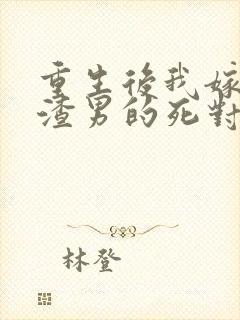 重生後我嫁
渣男的死對
林登